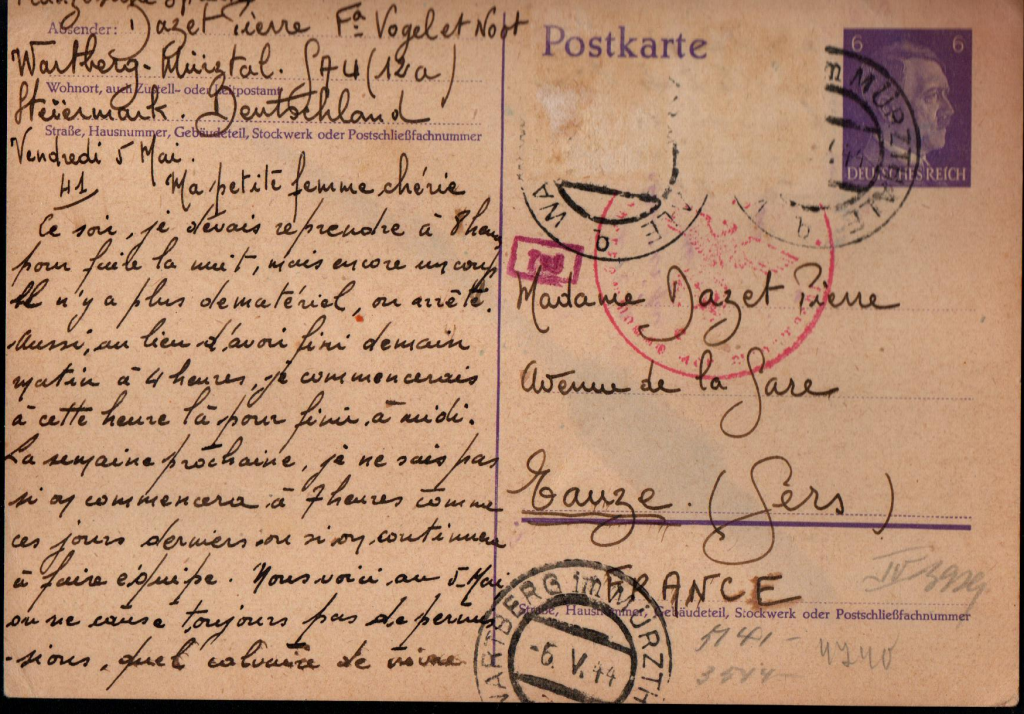 Absender: Dazet Pierre Fa Vogel et Noot
Wartberg-Mürztal. (12a)
Wohnort, auch Zustell- oder Leitpostamt
Steiermark. Deutschland
Straße, Hausnummer, Gebäudeteil, Stockwerk oder Postschließfachnummer
Vendredi 5 Mai.
41 Ma petite femme chérie
Ce soir, je devais reprendre à 8h
pour faire la nuit, mais encore un coup
il n'y a plus de matériel, on arrête.
Aussi, au lieu d'avoir fini demain
matin à 4 heures, je commencerais
à cette heure là pour finir à midi.
La semaine prochaine, je ne sais pas
si on commencera à 7 heures comme
ces jours derniers ou si on continuera
à faire équipe. Nous voici au 5 Mai
on ne cause toujours pas de permis
-sions, quel calvaire de
Postkarte
6 6
DEUTSCHES REICH
MÜRZTALE
b
WA
ALE
b
Madame Dazet Pierre
Avenue de la Gare
Eauze. (Gers)
FRANCE
Straße, Hausnummer, Gebäudeteil, Stockwerk oder Postschließfachnummer
WARTBERG im MÜRZTH
-6. V. 44
5141-
4740